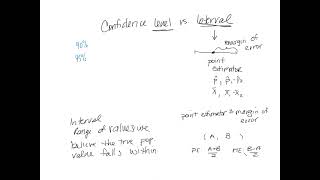 Confidence level vs. Interval
90%
95%
margin of
error
point
estimator
p̂, p̂₁-p̂₂
x̄, x̄₁-x̄₂
Interval
Range of values we
believe the true pop.
value falls within
point estimator ± margin of
error
(A, B)
PE A+B/2 ME B-A/2